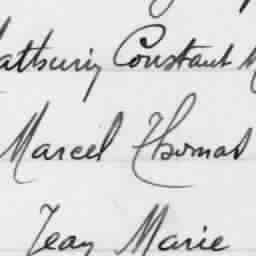 athurin Constant M
Marcel Thomas
Jean Marie